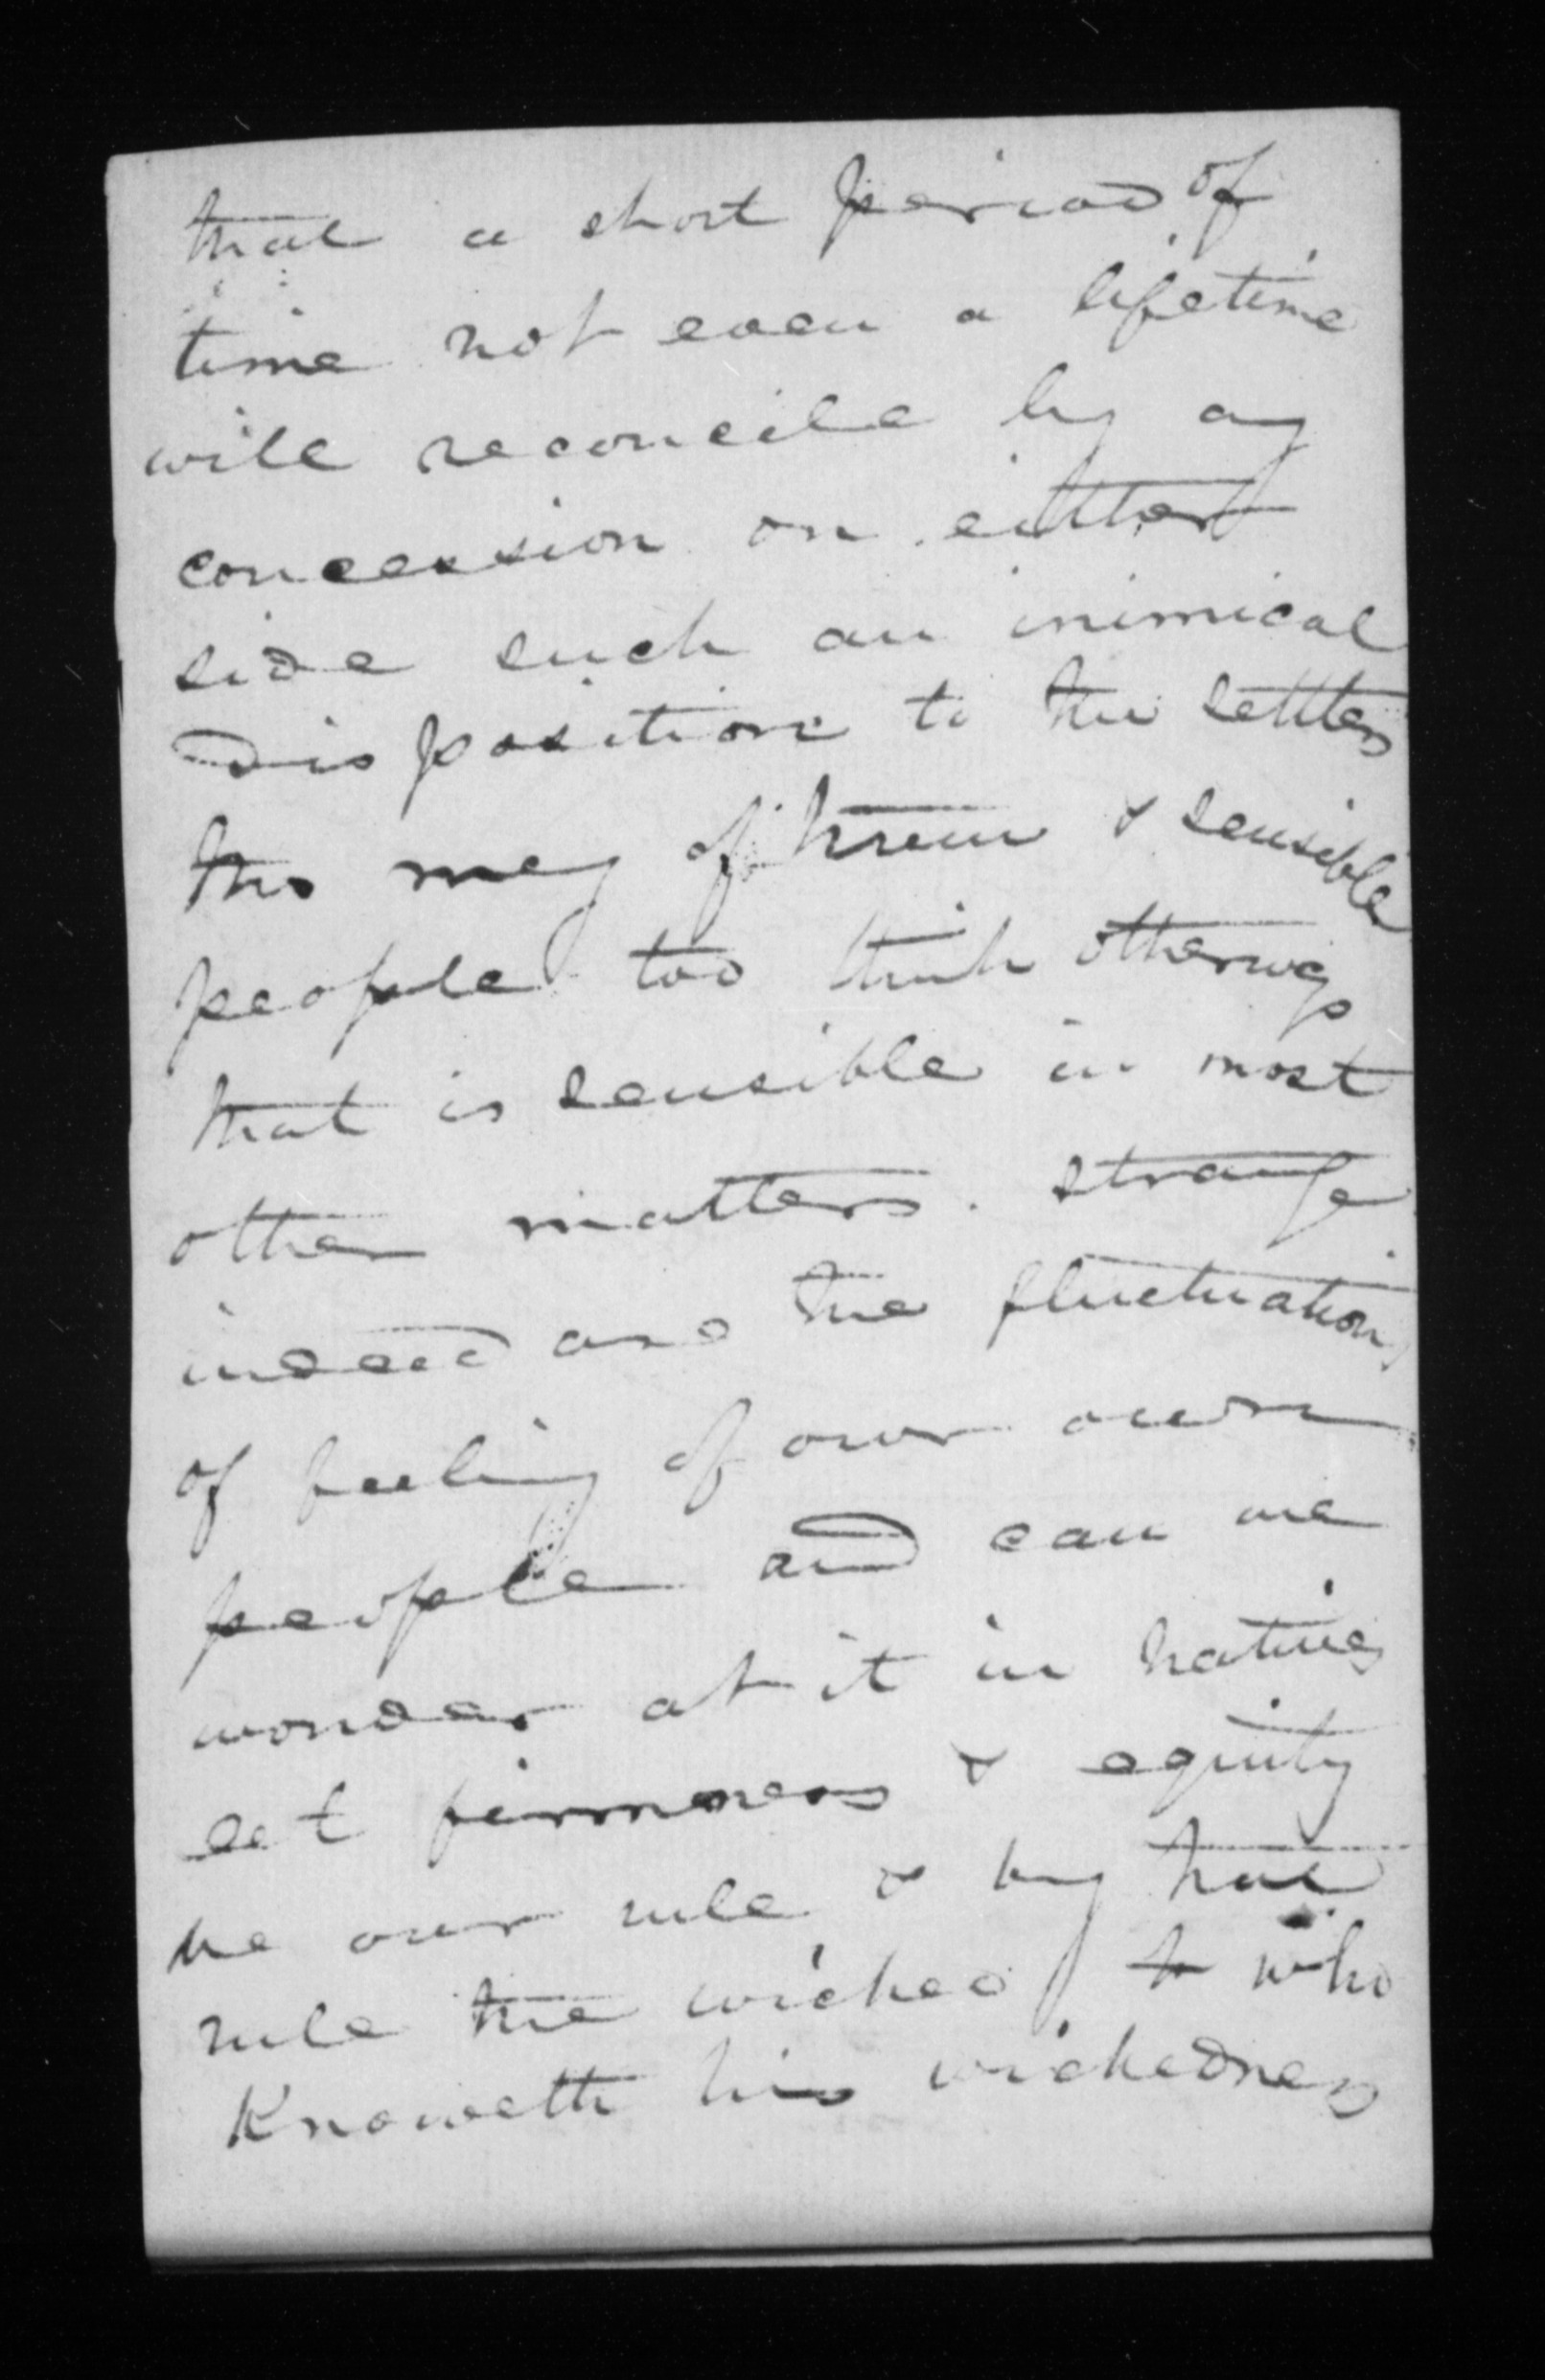 that a short period of
time not even a lifetime
will reconcile by any
concession on either
side such an inimical
disposition to the settlers
tho many of them & sensible
people too think otherways
that is sensible in most
other matters. strange
indeed are the fluctuations
of feeling of our own
people and can we
wonder at it in natives
let firmness & equity
be our rule & by that
rule the wicked to who
Knoweth his wickedness